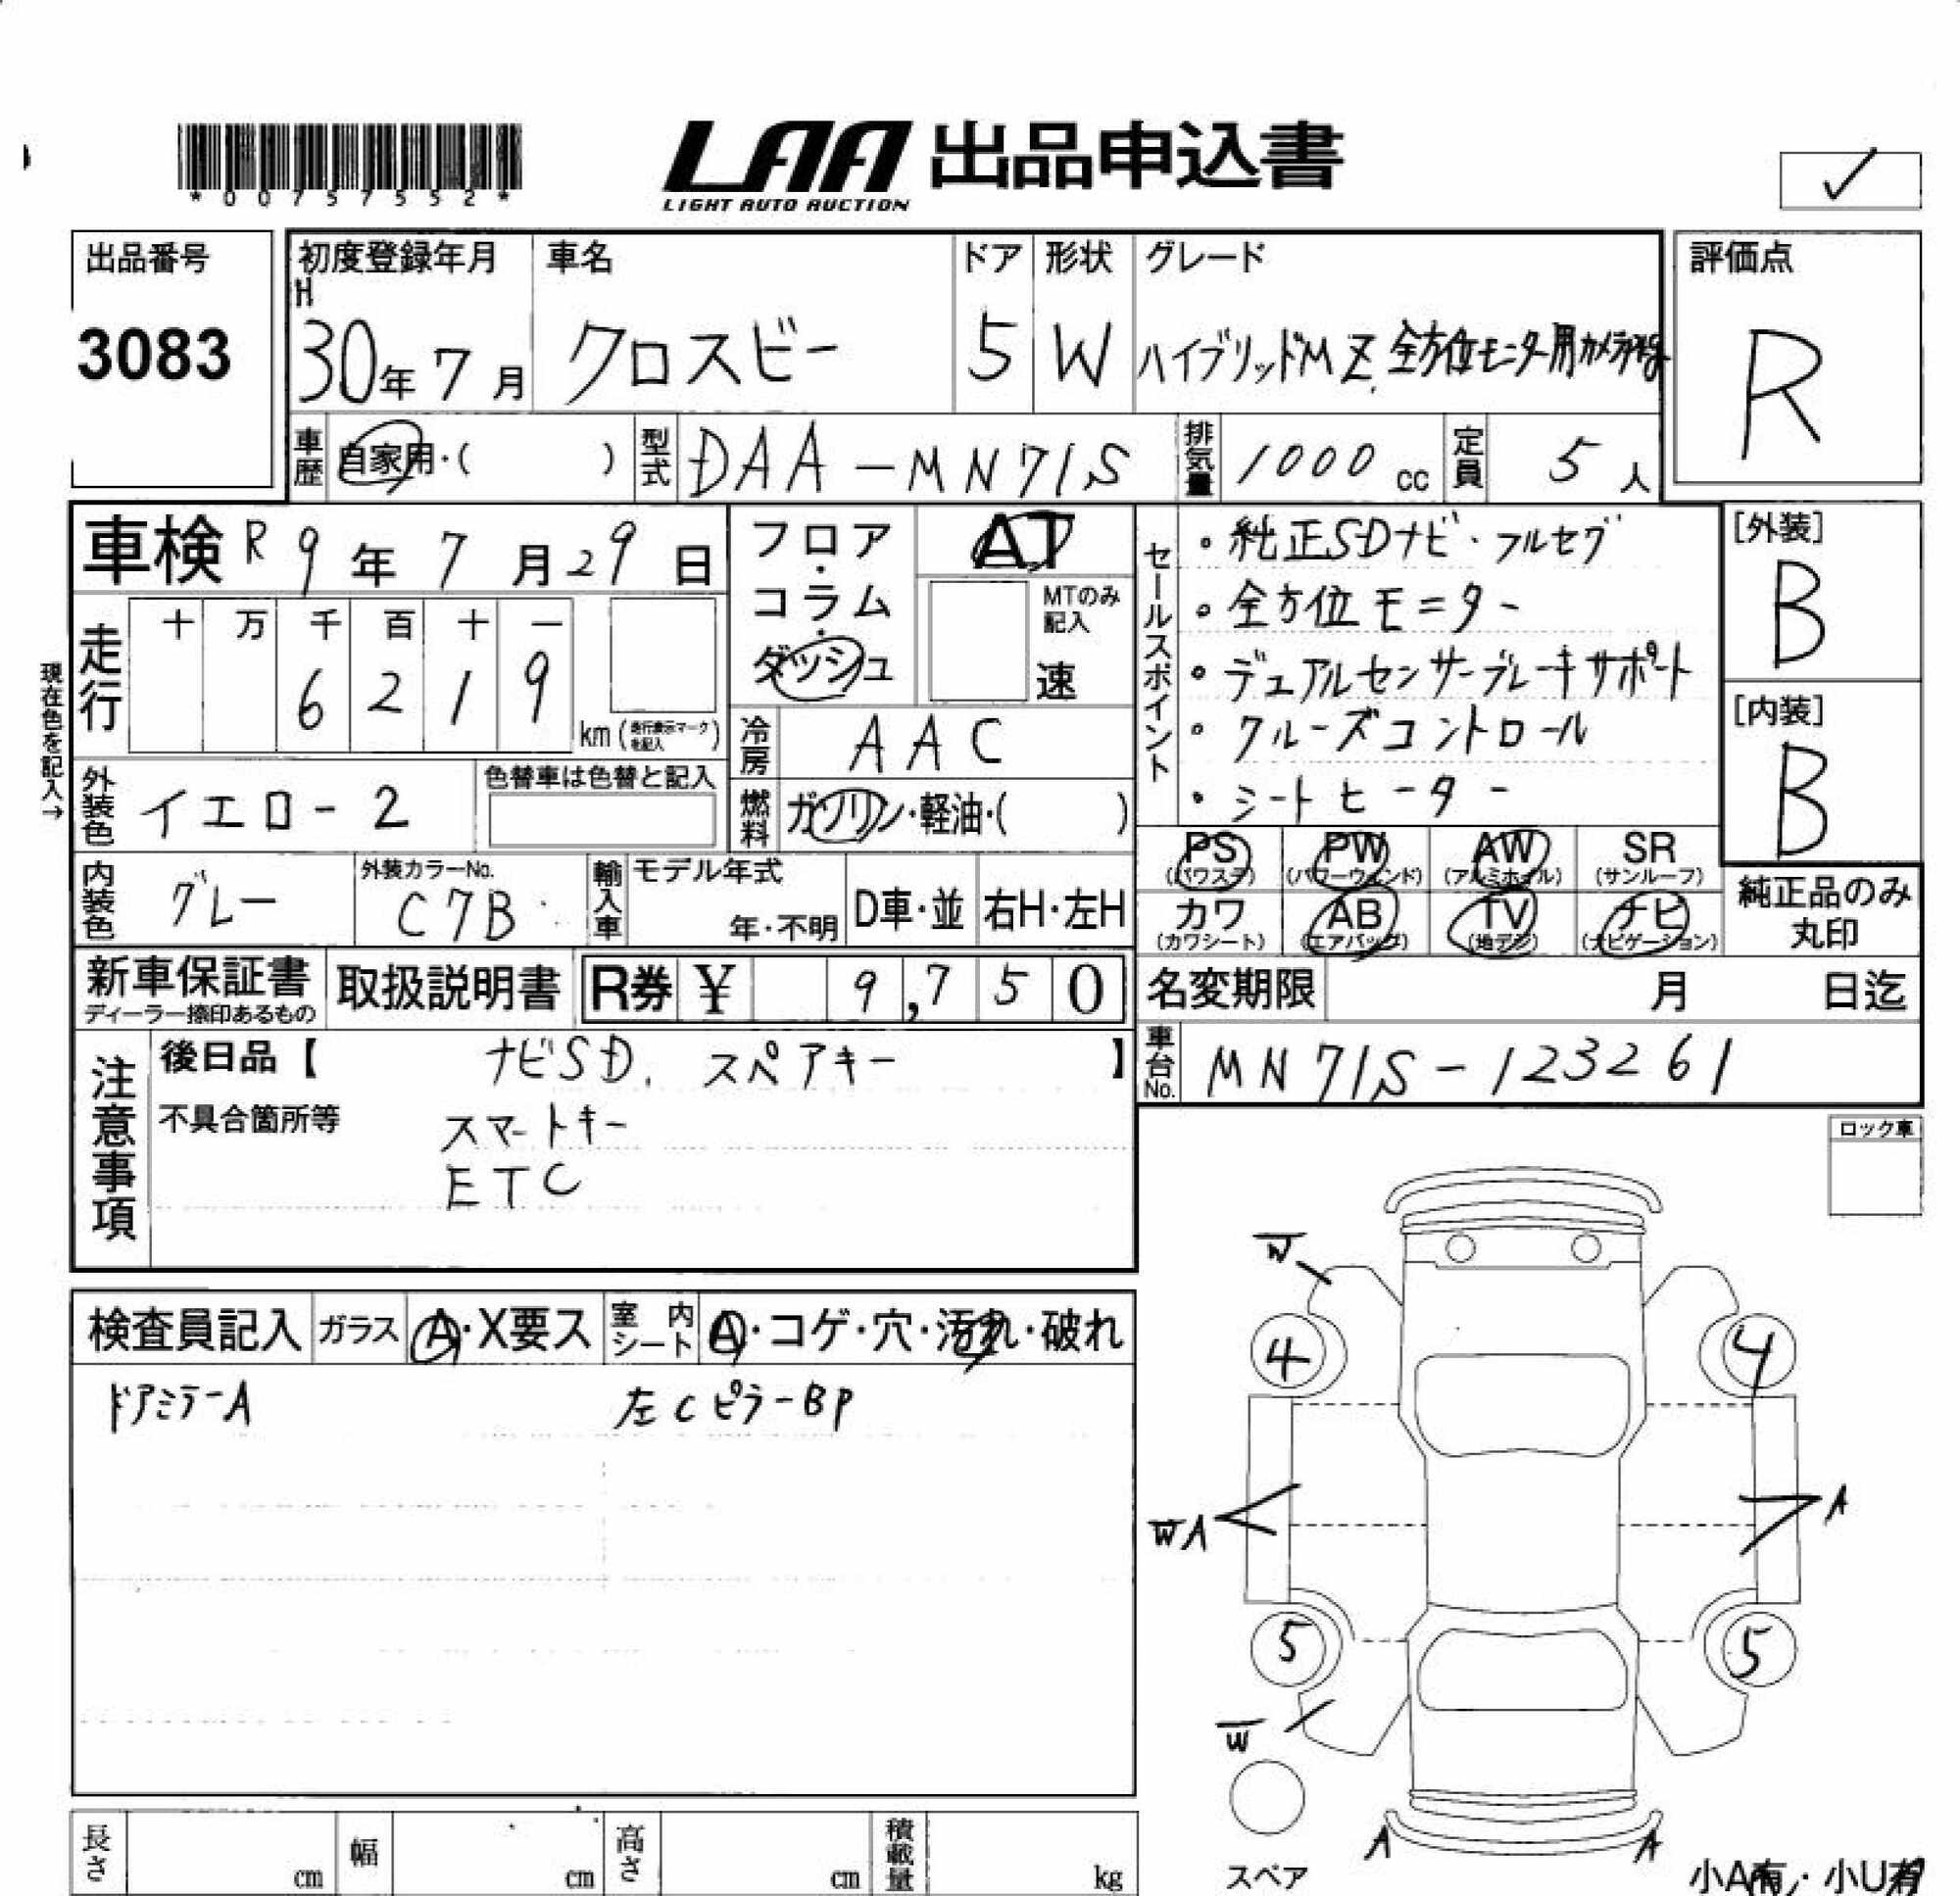 *00757552*
LAA 出品申込書
LIGHT AUTO AUCTION
✓
出品番号
3083
初度登録年月
H
30年 7月
車名
クロスビー
ドア
5
形状
W
グレード
ハイブリッドMZ. 全方位モニター用カメラ
評価点
R
車歴 自家用・( )
型式 DAA-MN71S
排気量 1000 cc
定員 5 人
車検 R 9 年 7 月 29 日
フロア・コラム・ダッシュ
AT
MTのみ記入
速
現在色を記入→
走行
十 万 千 百 十 一
6 2 1 9
km (走行表示マークを記入)
冷房 AAC
外装色 イエロー2
色替車は色替と記入
燃料 ガソリン・軽油・( )
内装色 グレー
外装カラーNo.
C7B
輸入車
モデル年式
年・不明
D車・並
右H・左H
セールスポイント
・純正SDナビ・フルセグ
・全方位モニター
・デュアルセンサーブレーキサポート
・クルーズコントロール
・シートヒーター
[外装]
B
[内装]
B
PS (パワステ)
PW (パワーウィンド)
AW (アルミホイル)
SR (サンルーフ)
カワ (カワシート)
AB (エアバッグ)
TV (地デジ)
ナビ (ナビゲーション)
純正品のみ丸印
新車保証書
ディーラー捺印あるもの
取扱説明書
R券 ¥ 9,750
名変期限 月 日迄
車台No. MN71S-123261
注意事項
後日品【 ナビSD. スペアキー 】
不具合箇所等
スマートキー
ETC
ロック車
検査員記入
ガラス A・X要ス
室内シート A・コゲ・穴・汚れ・破れ
ドアミラーA
左CピラーBP
W
4
4
WA
A
5
5
W
A
A
スペア
小A有・小U有
長さ cm
幅 cm
高さ cm
積載量 kg